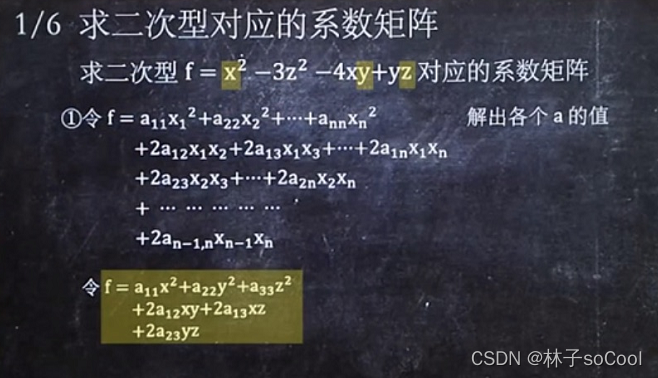 1/6 求二次型对应的系数矩阵
求二次型 f = x² −3z² −4xy+yz 对应的系数矩阵
①令 f = a₁₁x₁²+a₂₂x₂²+⋯+aₙₙxₙ² 解出各个 a 的值
+2a₁₂x₁x₂+2a₁₃x₁x₃+⋯+2a₁ₙx₁xₙ
+2a₂₃x₂x₃+⋯+2a₂ₙx₂xₙ
+ ⋯ ⋯ ⋯ ⋯ ⋯
+2aₙ₋₁,ₙxₙ₋₁xₙ
令 f = a₁₁x²+a₂₂y²+a₃₃z²
+2a₁₂xy+2a₁₃xz
+2a₂₃yz
CSDN @林子soCool